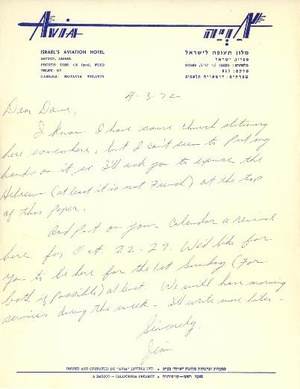 AVIA
אויה
ISRAEL'S AVIATION HOTEL
מלון תעופה לישראל
4-3-72
Dear Dave,
I know I have some church stationery
here somewhere, but I can't seem to put my
hands on it so I'll ask you to ignore the
Hebrew (at least it is not French) at the top
of this paper.
And put on your calendar a revival
here for Oct. 22-29. We'd like for
you to be here for the last Sunday (for
both if possible) at least. We will have morning
services during the week. I'll write more later-
Sincerely,
Jim
OWNED AND OPERATED BY "AVIA" HOTELS LTD.